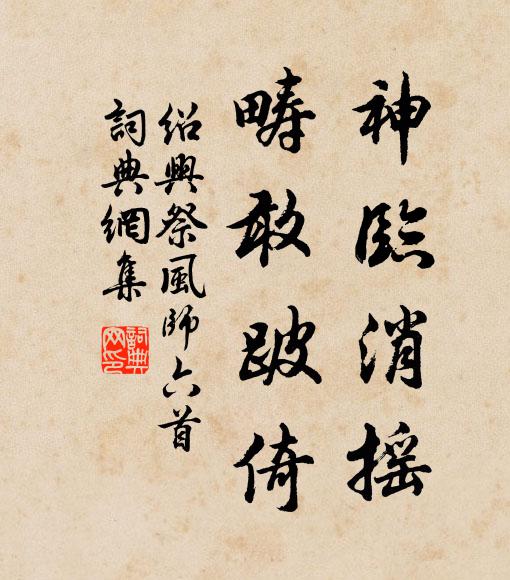 神臨消摇
疇敢跛倚
紹興祭風師六首
詞典網集
詞典網印